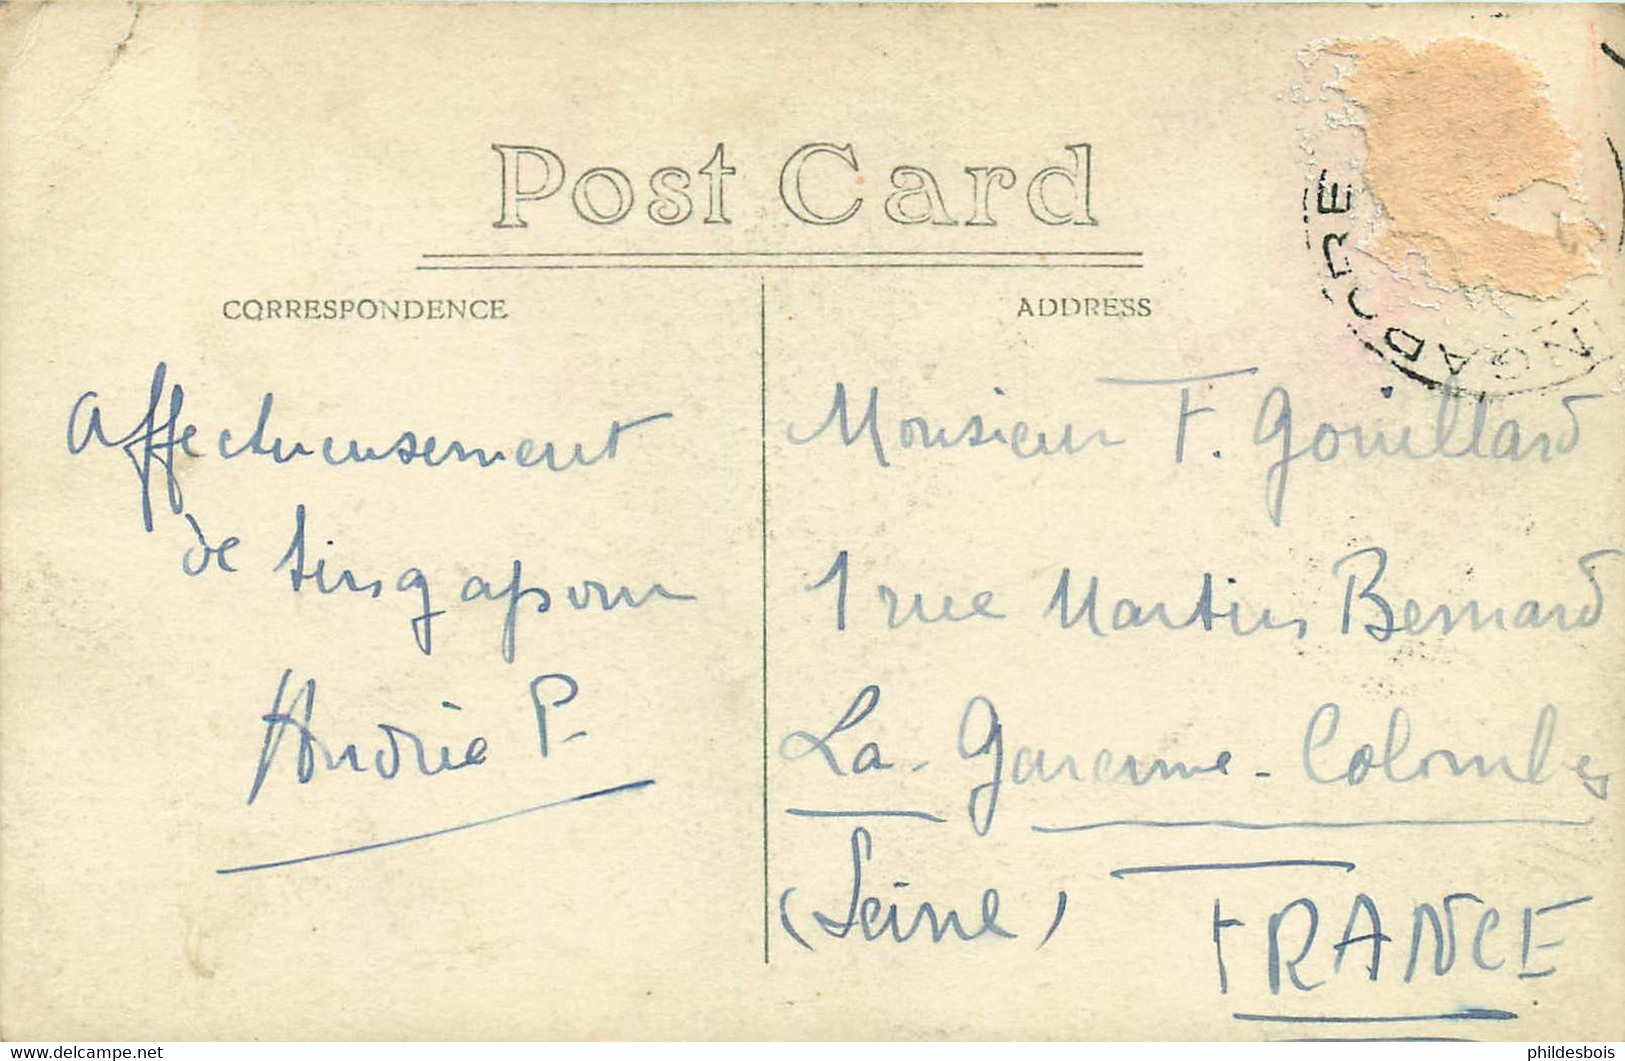 Post Card
CORRESPONDENCE
ADDRESS
Affectueusement
de Singapour
Andrée P.
Monsieur F. Gouillard
1 rue Martin Bernard
La Garenne-Colombes
(Seine)
FRANCE
NGAPORE
delcampe.net
phildesbois